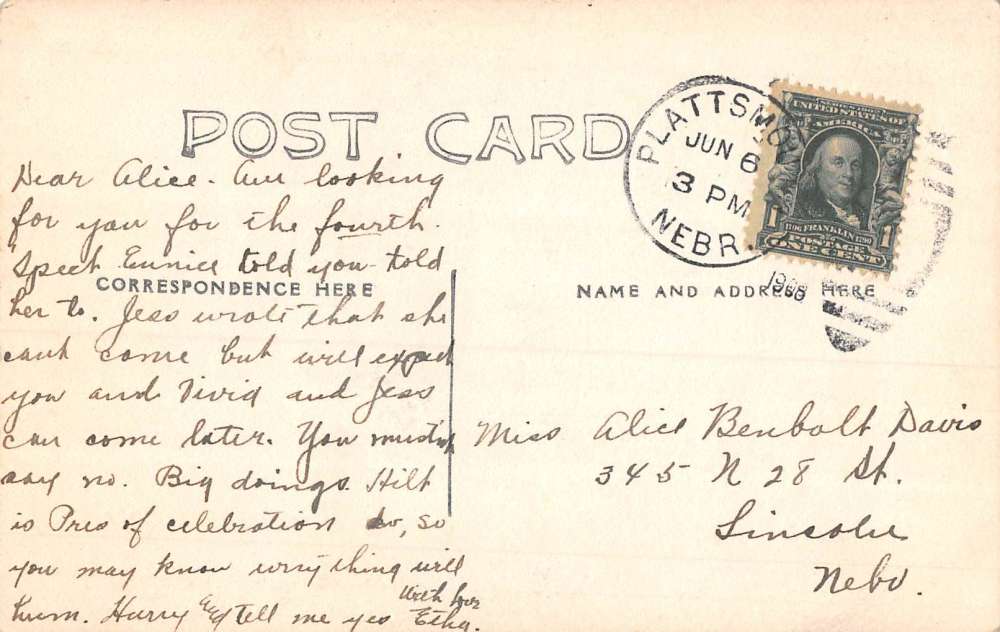 POST CARD
PLATTSMO
JUN 6
3 PM
NEBR.
1908
SERIES 1902
UNITED STATES OF
AMERICA
1706 FRANKLIN 1790
POSTAGE
1 1
ONE CENT
CORRESPONDENCE HERE
NAME AND ADDRESS HERE
Dear Alice - Am looking
for you for the fourth.
'Spect Eunice told you - told
her to. Jess wrote that she
cant come but will expect
you and Vivid and Jess
can come later. You mustn't
say no. Big doings. Hilt
is Pres of celebration so, so
you may know every thing will
hum. Hurry and tell me yes
With love
Etha.
Miss Alice Benbolt Davis
345 N 28 St.
Lincoln
Nebr.